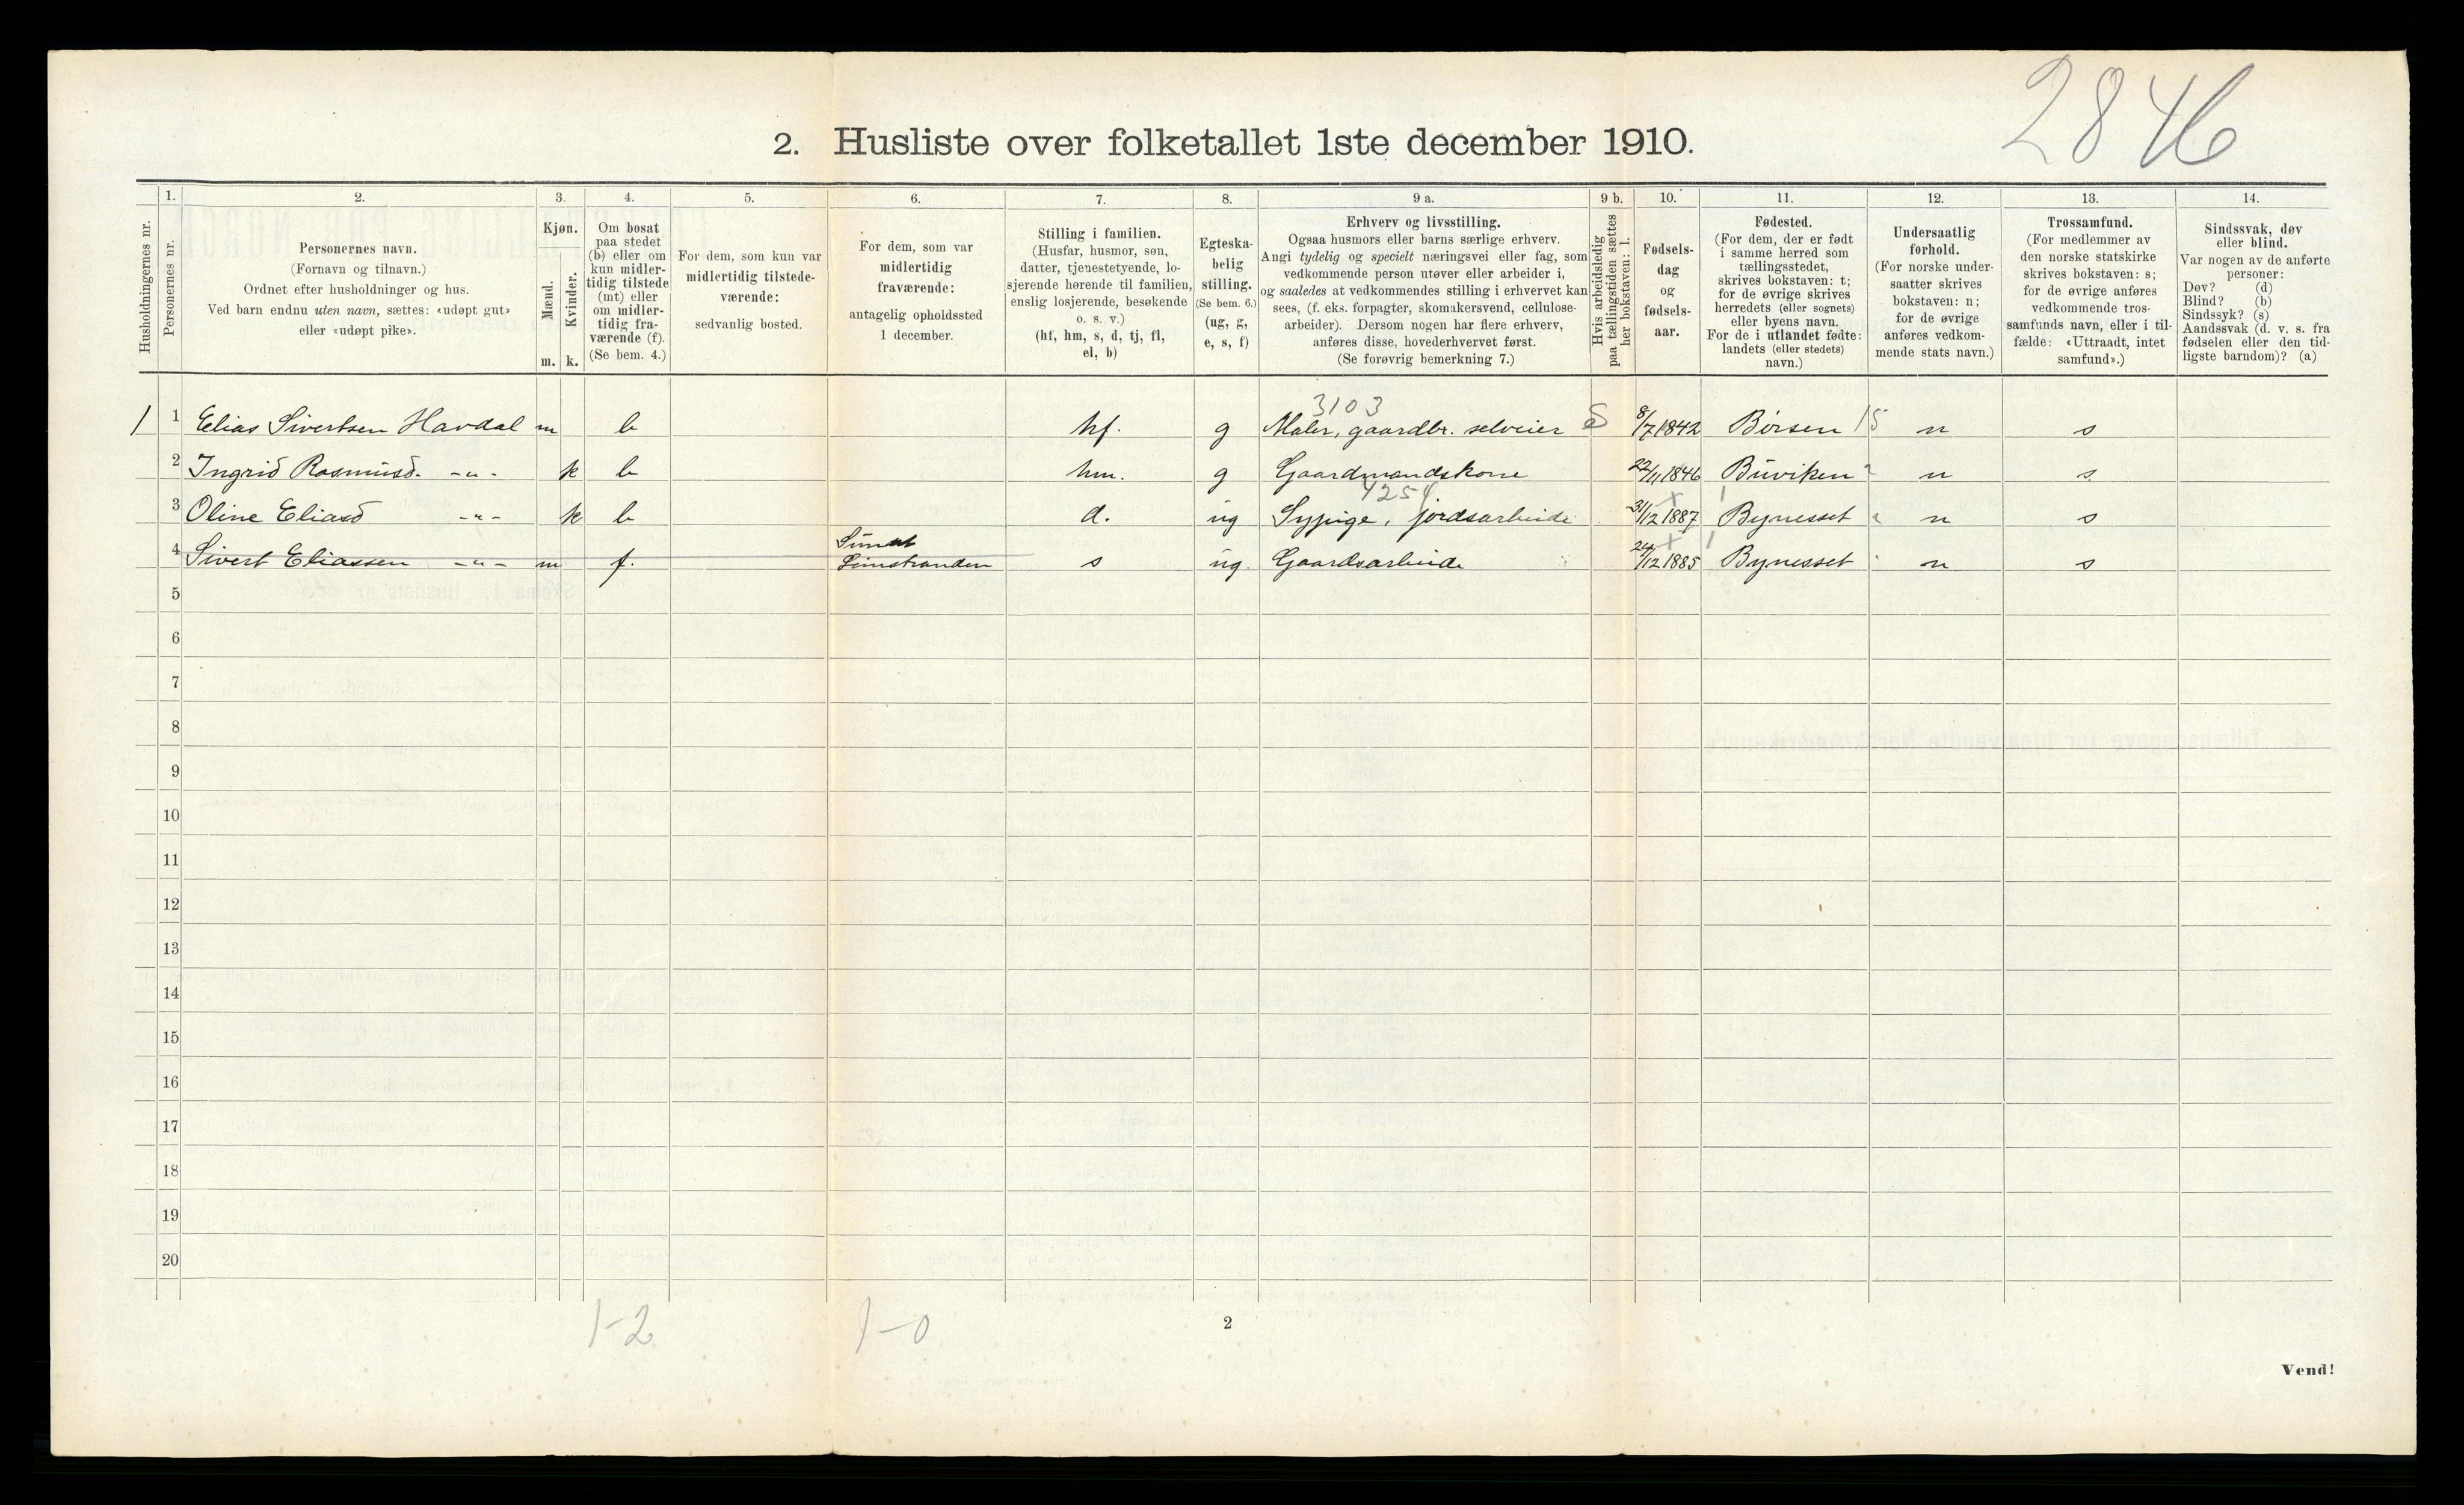 2846
2. Husliste over folketallet 1ste december 1910.
Husholdningernes nr.
1.
Personernes nr.
2.
Personernes navn.
(Fornavn og tilnavn.)
Ordnet efter husholdninger og hus.
Ved barn endnu uten navn, sættes: «udøpt gut»
eller «udøpt pike».
3.
Kjøn.
Mænd.
Kvinder.
m. k.
4.
Om bosat
paa stedet
(b) eller om
kun midler-
tidig tilstede
(mt) eller
om midler-
tidig fra-
værende (f).
(Se bem. 4.)
5.
For dem, som kun var
midlertidig tilstede-
værende:
sedvanlig bosted.
6.
For dem, som var
midlertidig
fraværende:
antagelig opholdssted
1 december.
7.
Stilling i familien.
(Husfar, husmor, søn,
datter, tjenestetyende, lo-
sjerende hørende til familien,
enslig losjerende, besøkende
o. s. v.)
(hf, hm, s, d, tj, fl,
el, b)
8.
Egteska-
belig
stilling.
(Se bem. 6.)
(ug, g,
e, s, f)
9 a.
Erhverv og livsstilling.
Ogsaa husmors eller barns særlige erhverv.
Angi tydelig og specielt næringsvei eller fag, som
vedkommende person utøver eller arbeider i,
og saaledes at vedkommendes stilling i erhvervet kan
sees, (f. eks. forpagter, skomakersvend, cellulose-
arbeider). Dersom nogen har flere erhverv,
anføres disse, hovederhvervet først.
(Se forøvrig bemerkning 7.)
9 b.
Hvis arbeidsledig
paa tællingstiden sættes
her bokstaven: l.
10.
Fødsels-
dag
og
fødsels-
aar.
11.
Fødested.
(For dem, der er født
i samme herred som
tællingsstedet,
skrives bokstaven: t;
for de øvrige skrives
herredets (eller sognets)
eller byens navn.
For de i utlandet fødte:
landets (eller stedets)
navn.)
12.
Undersaatlig
forhold.
(For norske under-
saatter skrives
bokstaven: n;
for de øvrige
anføres vedkom-
mende stats navn.)
13.
Trossamfund.
(For medlemmer av
den norske statskirke
skrives bokstaven: s;
for de øvrige anføres
vedkommende tros-
samfunds navn, eller i til-
fælde: «Uttraadt, intet
samfund».)
14.
Sindssvak, døv
eller blind.
Var nogen av de anførte
personer:
Døv? (d)
Blind? (b)
Sindssyk? (s)
Aandssvak (d. v. s. fra
fødselen eller den tid-
ligste barndom)? (a)
3103
1 1 Elias Sivertsen Havdal m b hf. g Maler, gaardbr. selveier 8/7 1842 Børsen 15 n s
2 Ingrid Rasmusd. -"- k b hm. g Gaardmandskone 22/11 1846 Buviken n s
4254
3 Oline Eliasd -"- k b d. ug Sypige, jordsarbeide 31/12 1887 Bynesset n s
4 Sivert Eliassen -"- m f. Leinstranden s ug. Gaardsarbeide 24/12 1885 Bynesset n s
5
6
7
8
9
10
11
12
13
14
15
16
17
18
19
20
1-2 1-0
2
Vend!